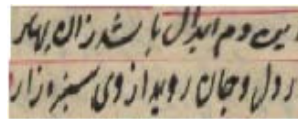 این دم ابدال باشد زان بهار
در دل و جان روید از وی سبزه زار